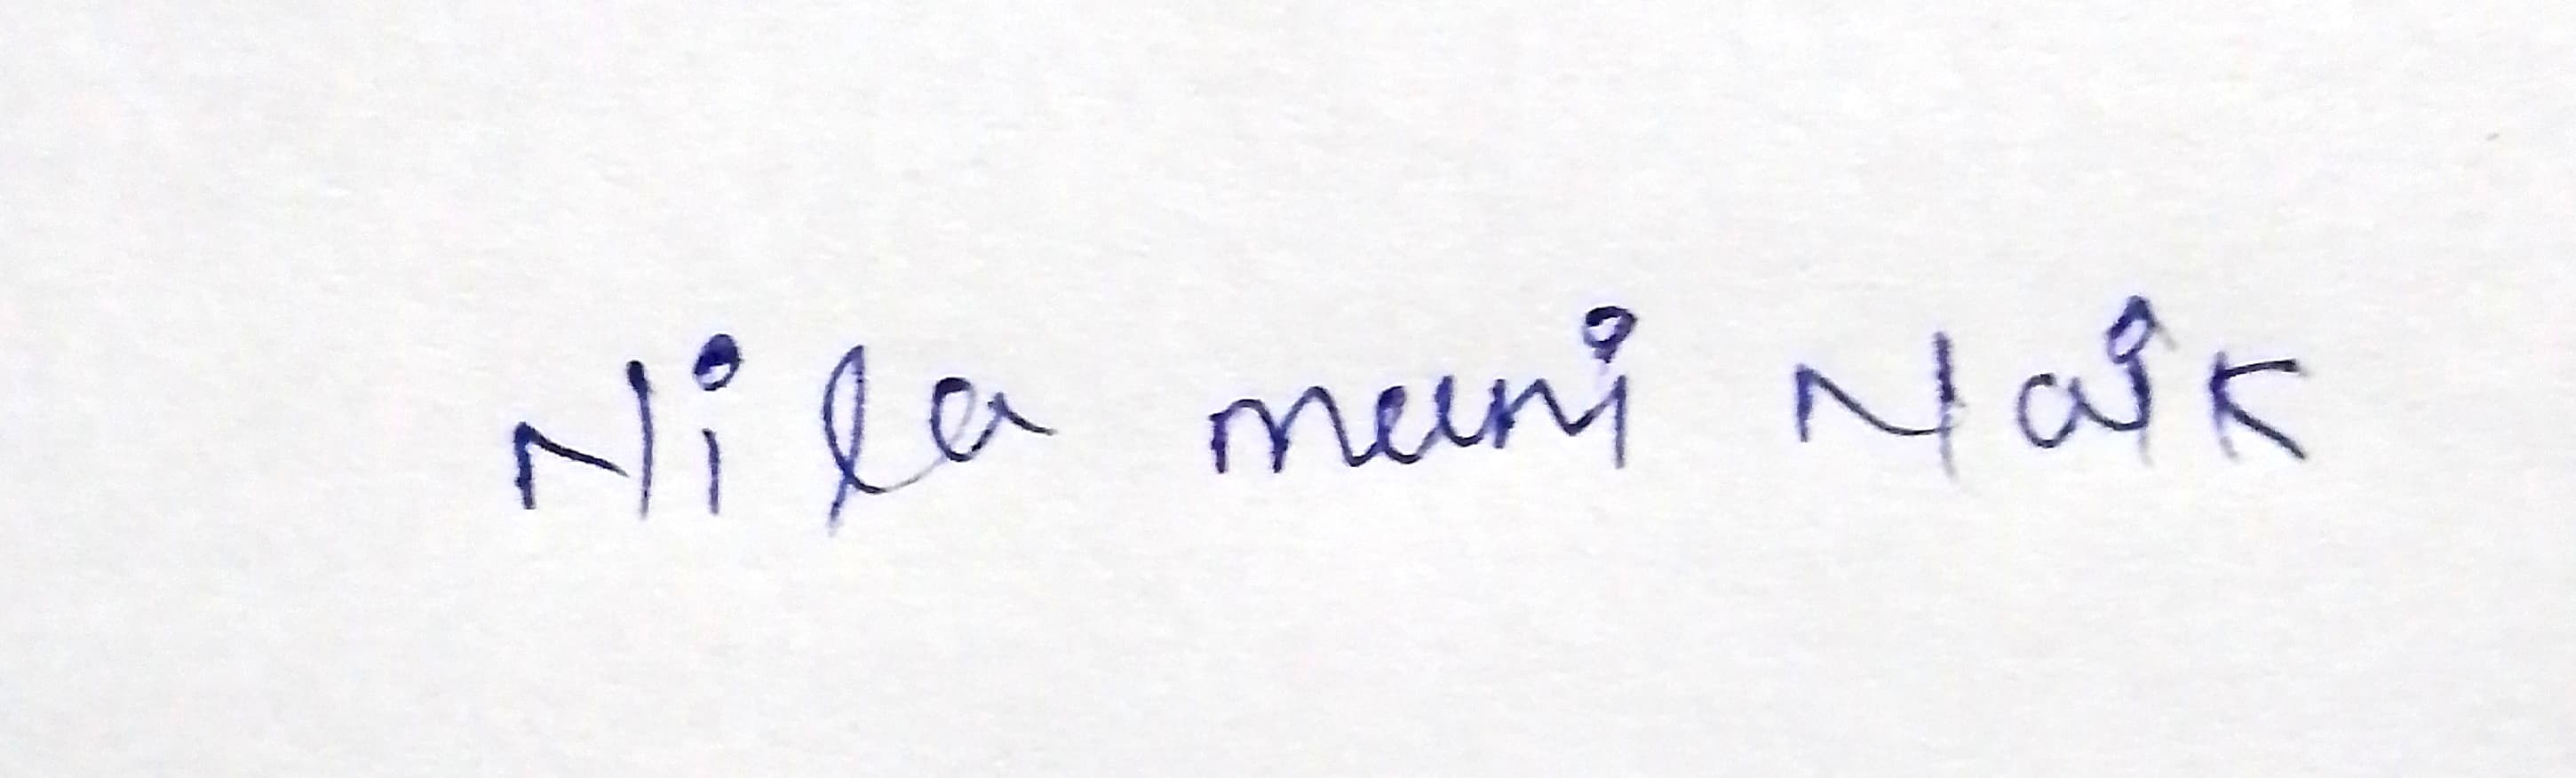 Nila mani Naik